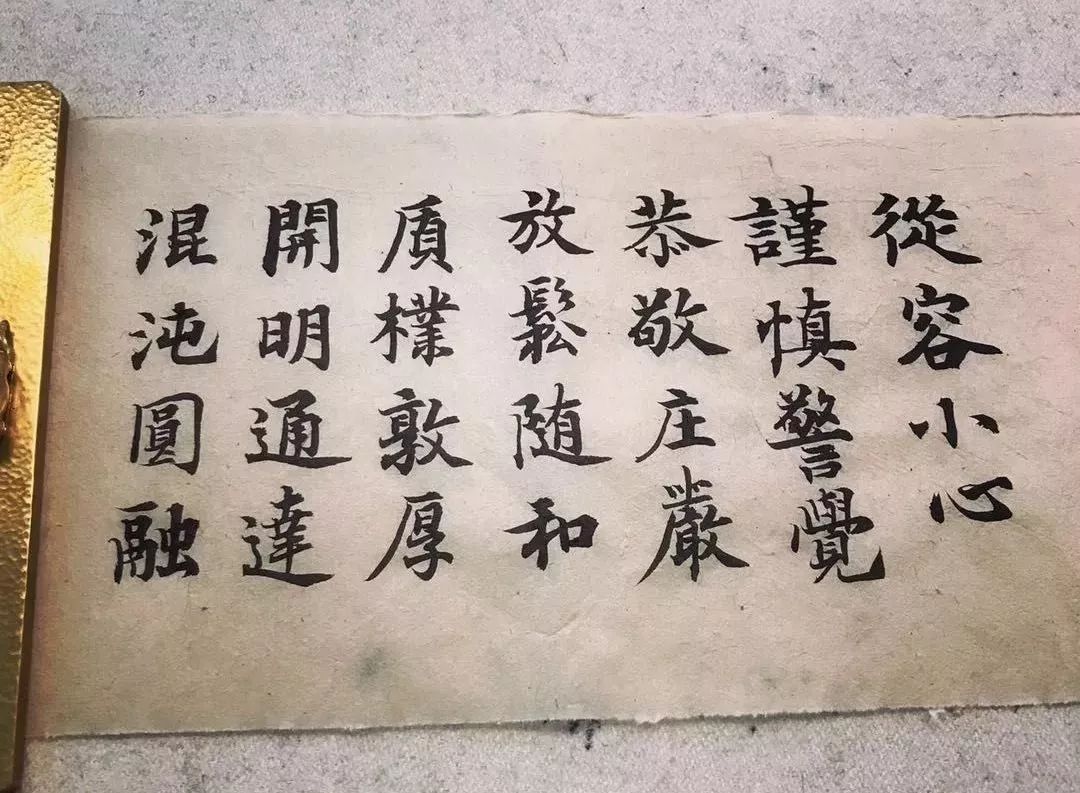 從容小心
謹慎警覺
恭敬庄嚴
放鬆随和
质樸敦厚
開明通達
混沌圓融